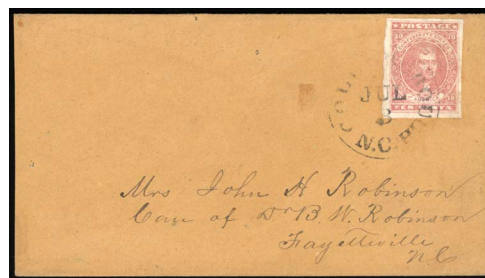 POSTAGE
TEN CENTS
JUL
3
N.C.
Mrs John H Robinson
Care of Dr B. W. Robinson
Fayetteville
N C